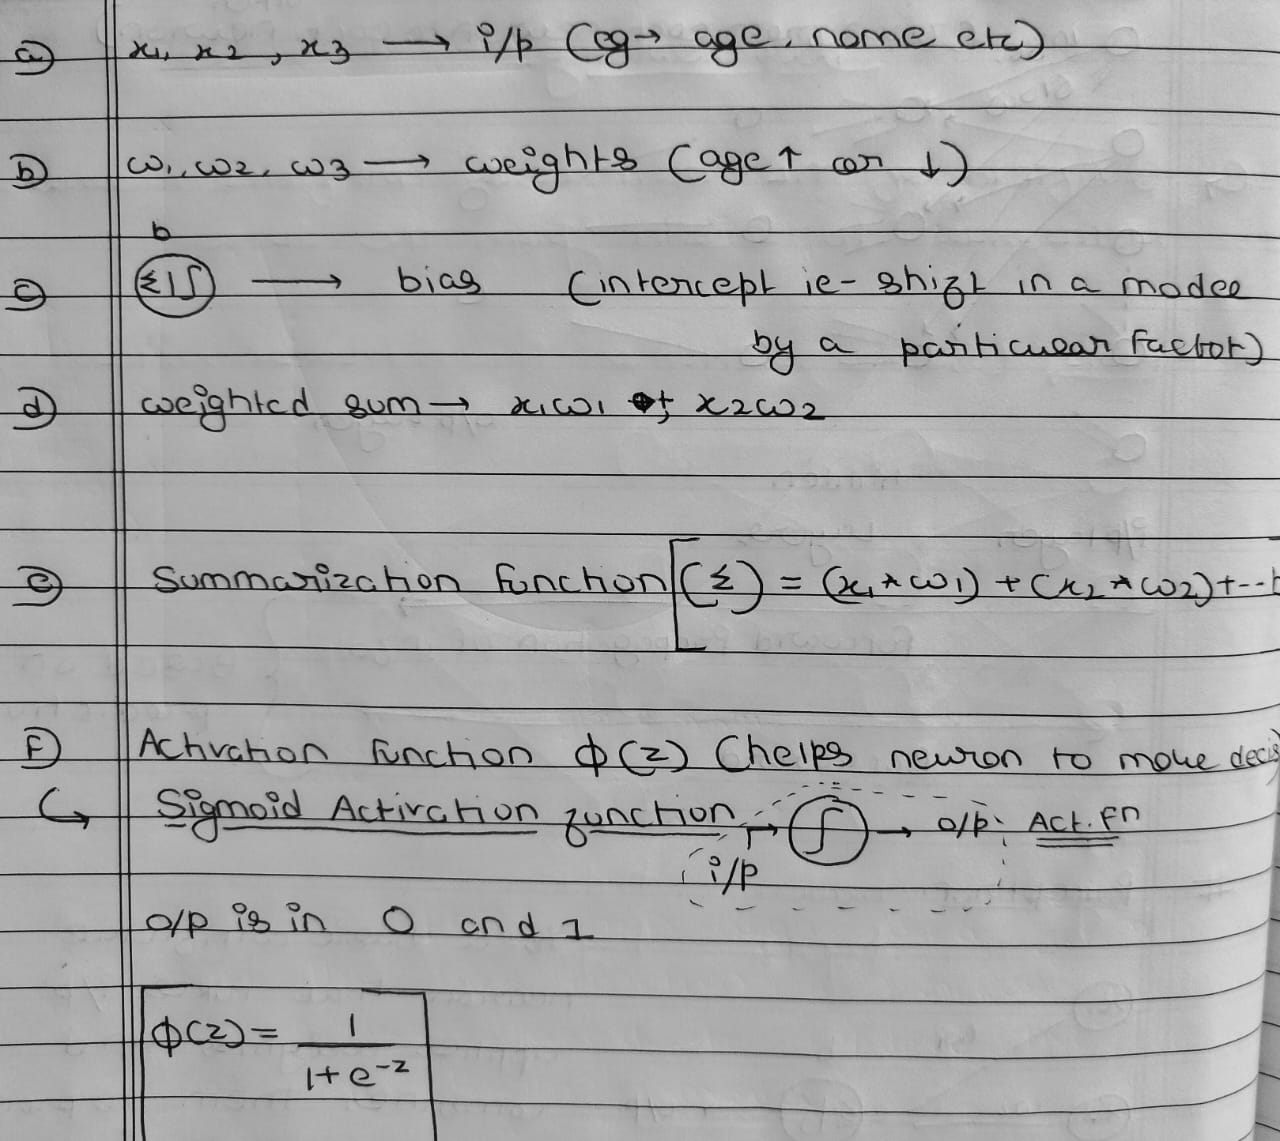 a) x1, x2, x3 → i/p (eg → age, name etc)
b) w1, w2, w3 → weights (age ↑ or ↓)
b
c) Σ|∫ → bias (intercept ie- shift in a model
by a particular factor)
d) weighted sum → x1w1 + x2w2
e) Summarization function [(Σ) = (x1*w1) + (x2*w2)+--
F) Activation function ϕ(z) (helps neuron to make
↳ Sigmoid Activation function → ∫ → o/p. Act. Fn
i/p
o/p is in 0 and 1
ϕ(z) = 1 / (1+e^-z)